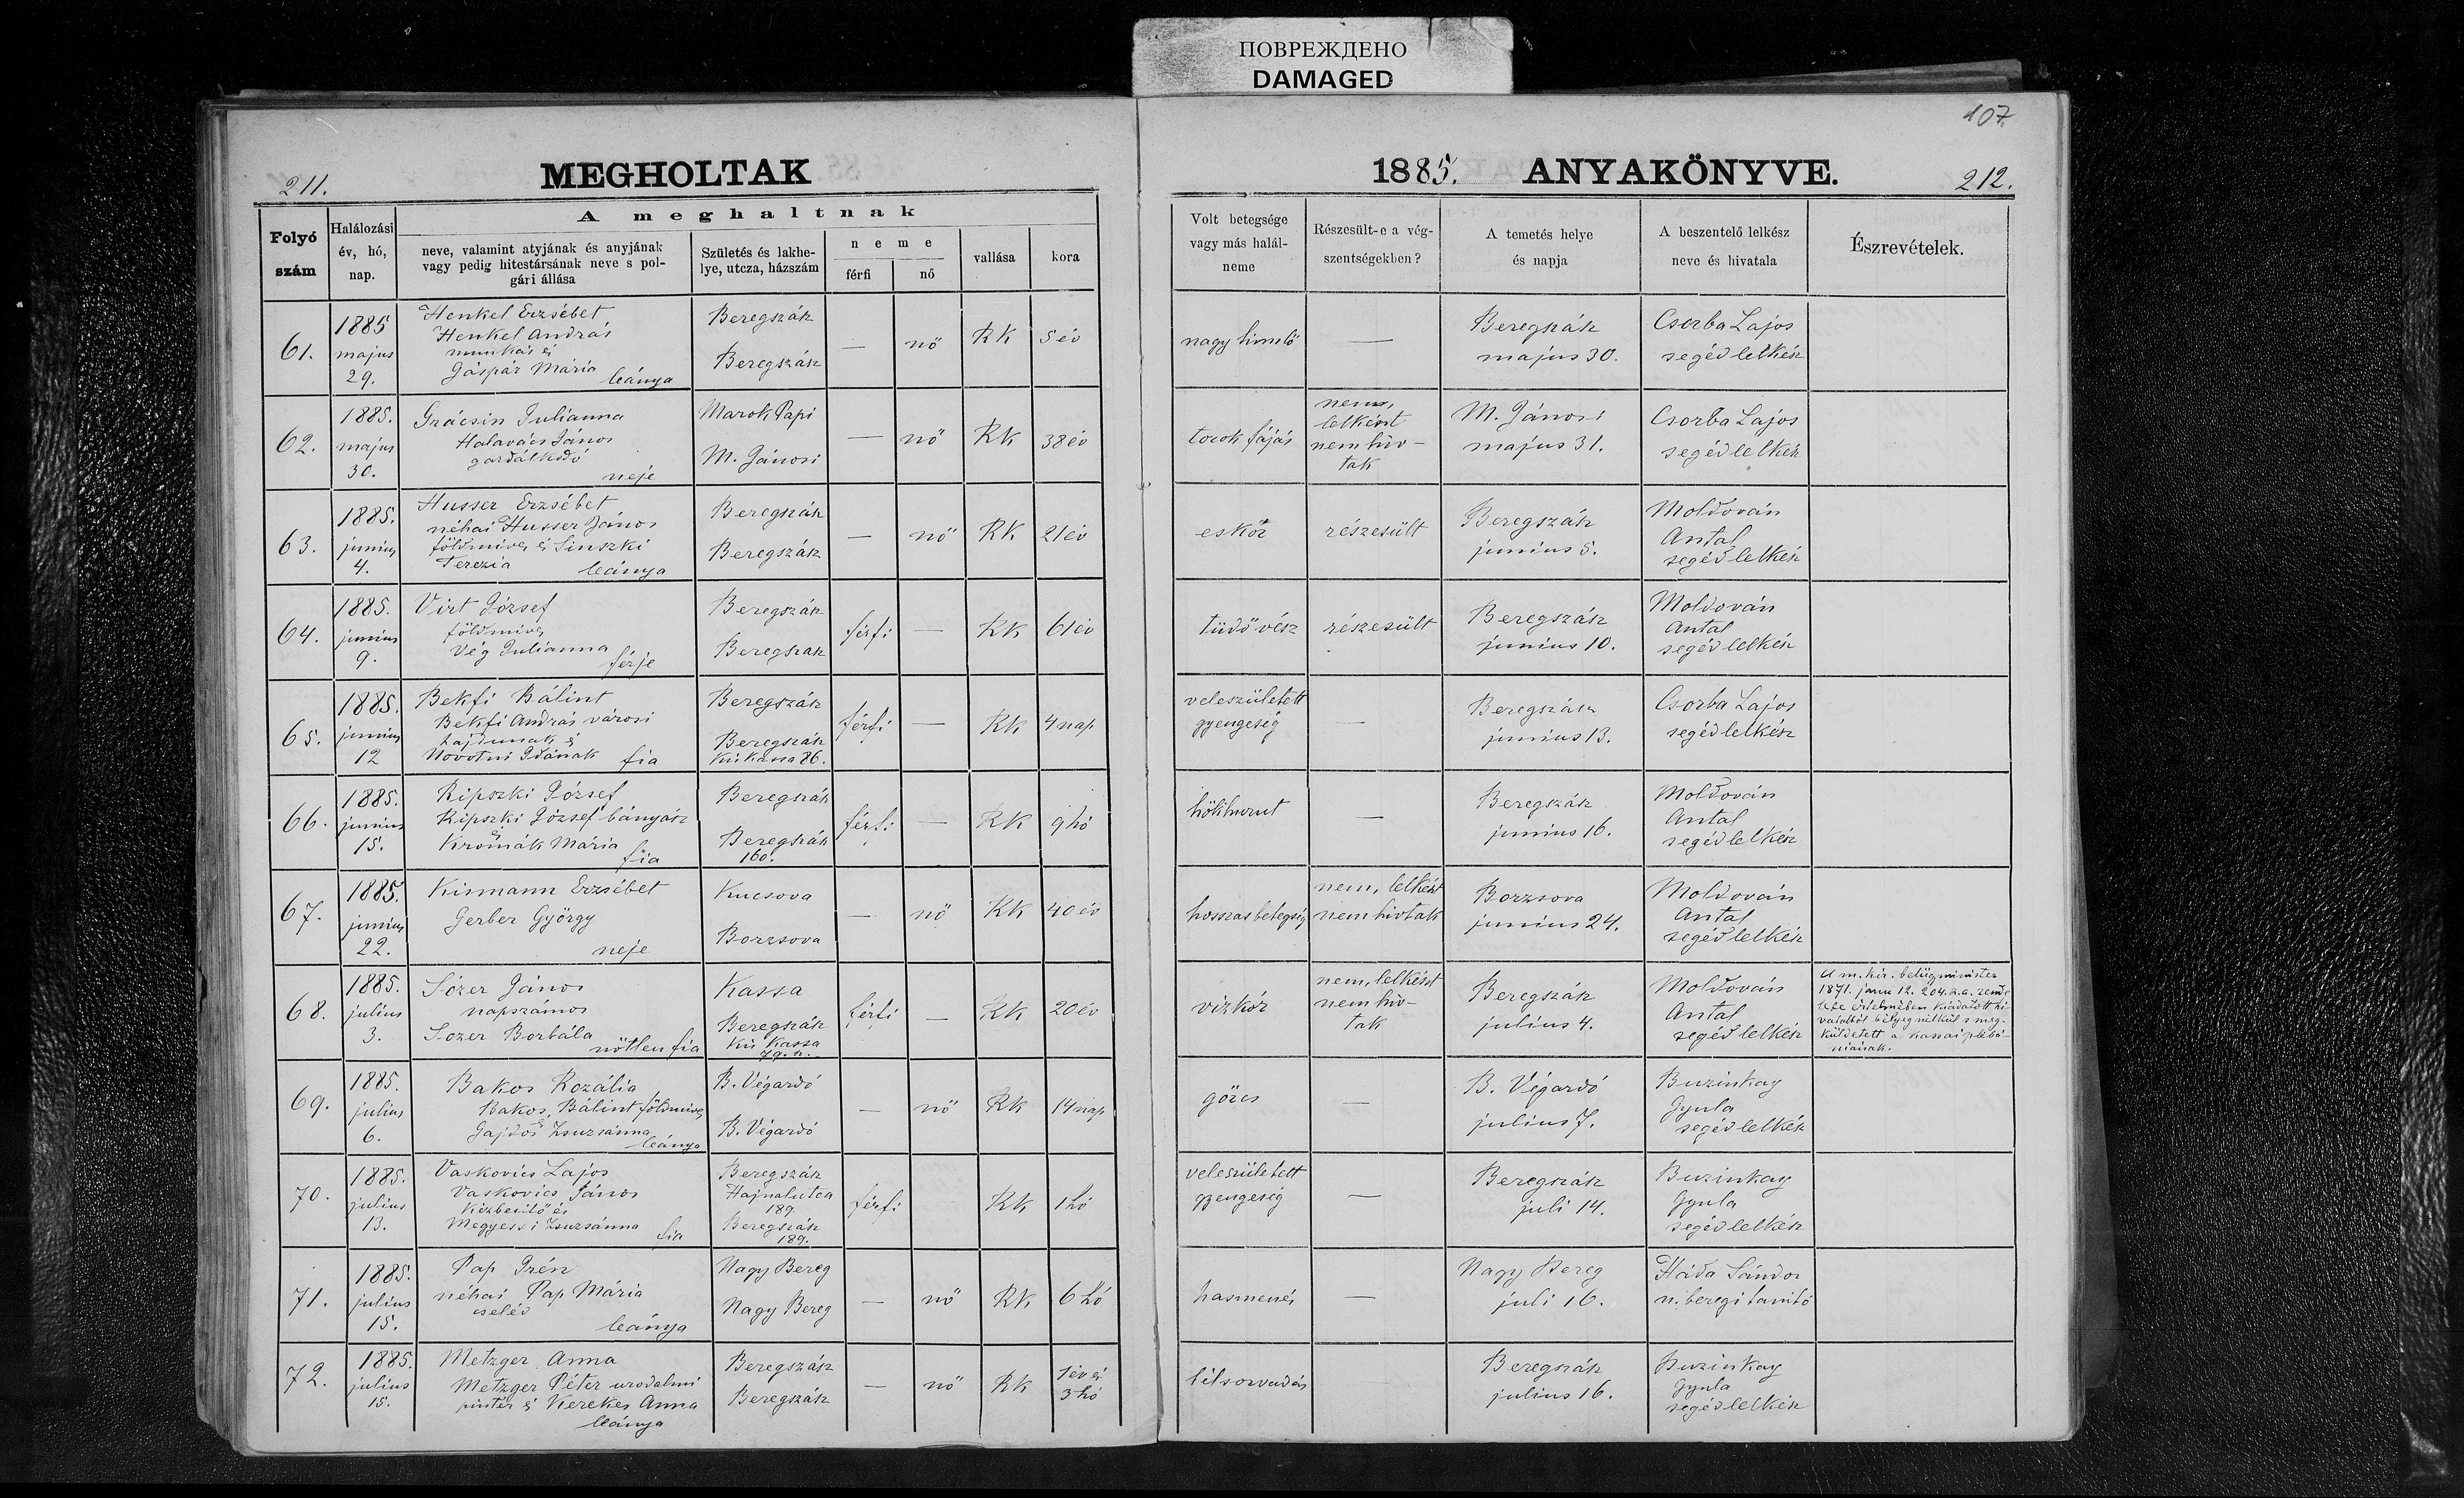 ПОВРЕЖДЕНО
DAMAGED
107.
211.
MEGHOLTAK
1885. ANYAKÖNYVE.
212.
Folyó szám
Halálozási év, hó, nap.
A meghaltnak
neve, valamint atyjának és anyjának vagy pedig hitestársának neve s polgári állása
Születés és lakhelye, utcza, házszám
neme
férfi
nő
vallása
kora
Volt betegsége vagy más halálneme
Részesült-e a végszentségekben?
A temetés helye és napja
A beszentelő lelkész neve és hivatala
Észrevételek.
61.
1885
majus
29.
Henkel Erzsébet
Henkel András
munkás és
Gáspár Mária
leánya
Beregszász
Beregszász
—
nő
RK
5 év
nagy himlő
—
Beregszász
május 30.
Csorba Lajos
segédlelkész
62.
1885.
majus
30.
Grácsin Julianna
Halavács János
gazdálkodó
neje
Marok Papi
M. Jánosi
—
nő
RK
38 év
torok fájás
nem,
lelkészt
nem hiv-
tak
M. Jánosi
május 31.
Csorba Lajos
segédlelkész
63.
1885.
junius
4.
Husser Erzsébet
néhai Husser János
földmives és Sinszki
Terezia leánya
Beregszász
Beregszász
—
nő
RK
21 év
eskór
részesült
Beregszász
junius 5.
Moldován
Antal
segédlelkész
64.
1885.
junius
9.
Virt József
földmives
Vég Julianna
férje
Beregszász
Beregszasz
férfi
—
RK
61 év
tüdővész
részesült
Beregszász
junius 10.
Moldován
Antal
segédlelkész
65.
1885.
junius
12
Bekfi Bálint
Bekfi András városi
hajdunak és
Novotni Idának fia
Beregszász
Beregszász
Kis Kassa 86.
férfi
—
RK
4 nap
veleszületett
gyengeség
—
Beregszász
junius 13.
Csorba Lajos
segédlelkész
66.
1885.
junius
15.
Ripszki József
Ripszki József bányász
és
Kromák Mária
fia
Beregszász
Beregszász
160.
férfi
—
RK
9 hó
hökhurut
—
Beregszász
junius 16.
Moldován
Antal
segédlelkész
67.
1885.
junius
22.
Kismann Erzsébet
Gerber György
neje
Kucsova
Borzsova
—
nő
RK
40 év
hosszas betegség
nem, lelkészt
nem hivtak
Borzsova
junius 24.
Moldován
Antal
segédlelkész
68.
1885.
julius
3.
Sózer János
napszámos
Sozer Borbála
nőtlen fia
Kassa
Beregszász
Kis Kassa
79. sz.
férfi
—
RK
20 év
vizkór
nem, lelkészt
nem hiv-
tak
Beregszász
julius 4.
Moldován
Antal
segédlelkész
A m. kir. belügyminister
1871. janu 12. 204. sz. a. rende
lete értelmében kiadatott hi-
vatalból bélyeg nélkül s meg-
küldetett a kassai plébá-
niának.
69.
1885.
julius
6.
Bakos Rozália
Bakos Bálint földmives
és
Gajdos Zsuzsánna
leánya
B. Végardó
B. Végardó
—
nő
RK
14 nap
görcs
—
B. Végardó
julius 7.
Buzinkay
Gyula
segédlelkész
70.
1885.
julius
13.
Vaskovics Lajos
Vaskovics János
Kézbesitő és
Megyessi Zsuzsánna
fia
Beregszász
Hajnalutca
189.
Beregszász
189.
férfi
RK
1 hó
veleszületett
gyengeség
—
Beregszász
juli 14.
Buzinkay
Gyula
segédlelkész
71.
1885.
julius
15.
Pap Irén
néhai Pap Mária
cseléd
leánya
Nagy Bereg
Nagy Bereg
—
nő
RK
6 hó
hasmenés
—
Nagy Bereg
juli 16.
Háda Sándor
n. beregi tanitó
72.
1885.
julius
15.
Metzger Anna
Metzger Péter urodalmi
pintér és Kerekes Anna
leánya
Beregszász
Beregszász
—
nő
RK
1 év és
3 hó
bélsorvadás
—
Beregszász
julius 16.
Buzinkay
Gyula
segédlelkész